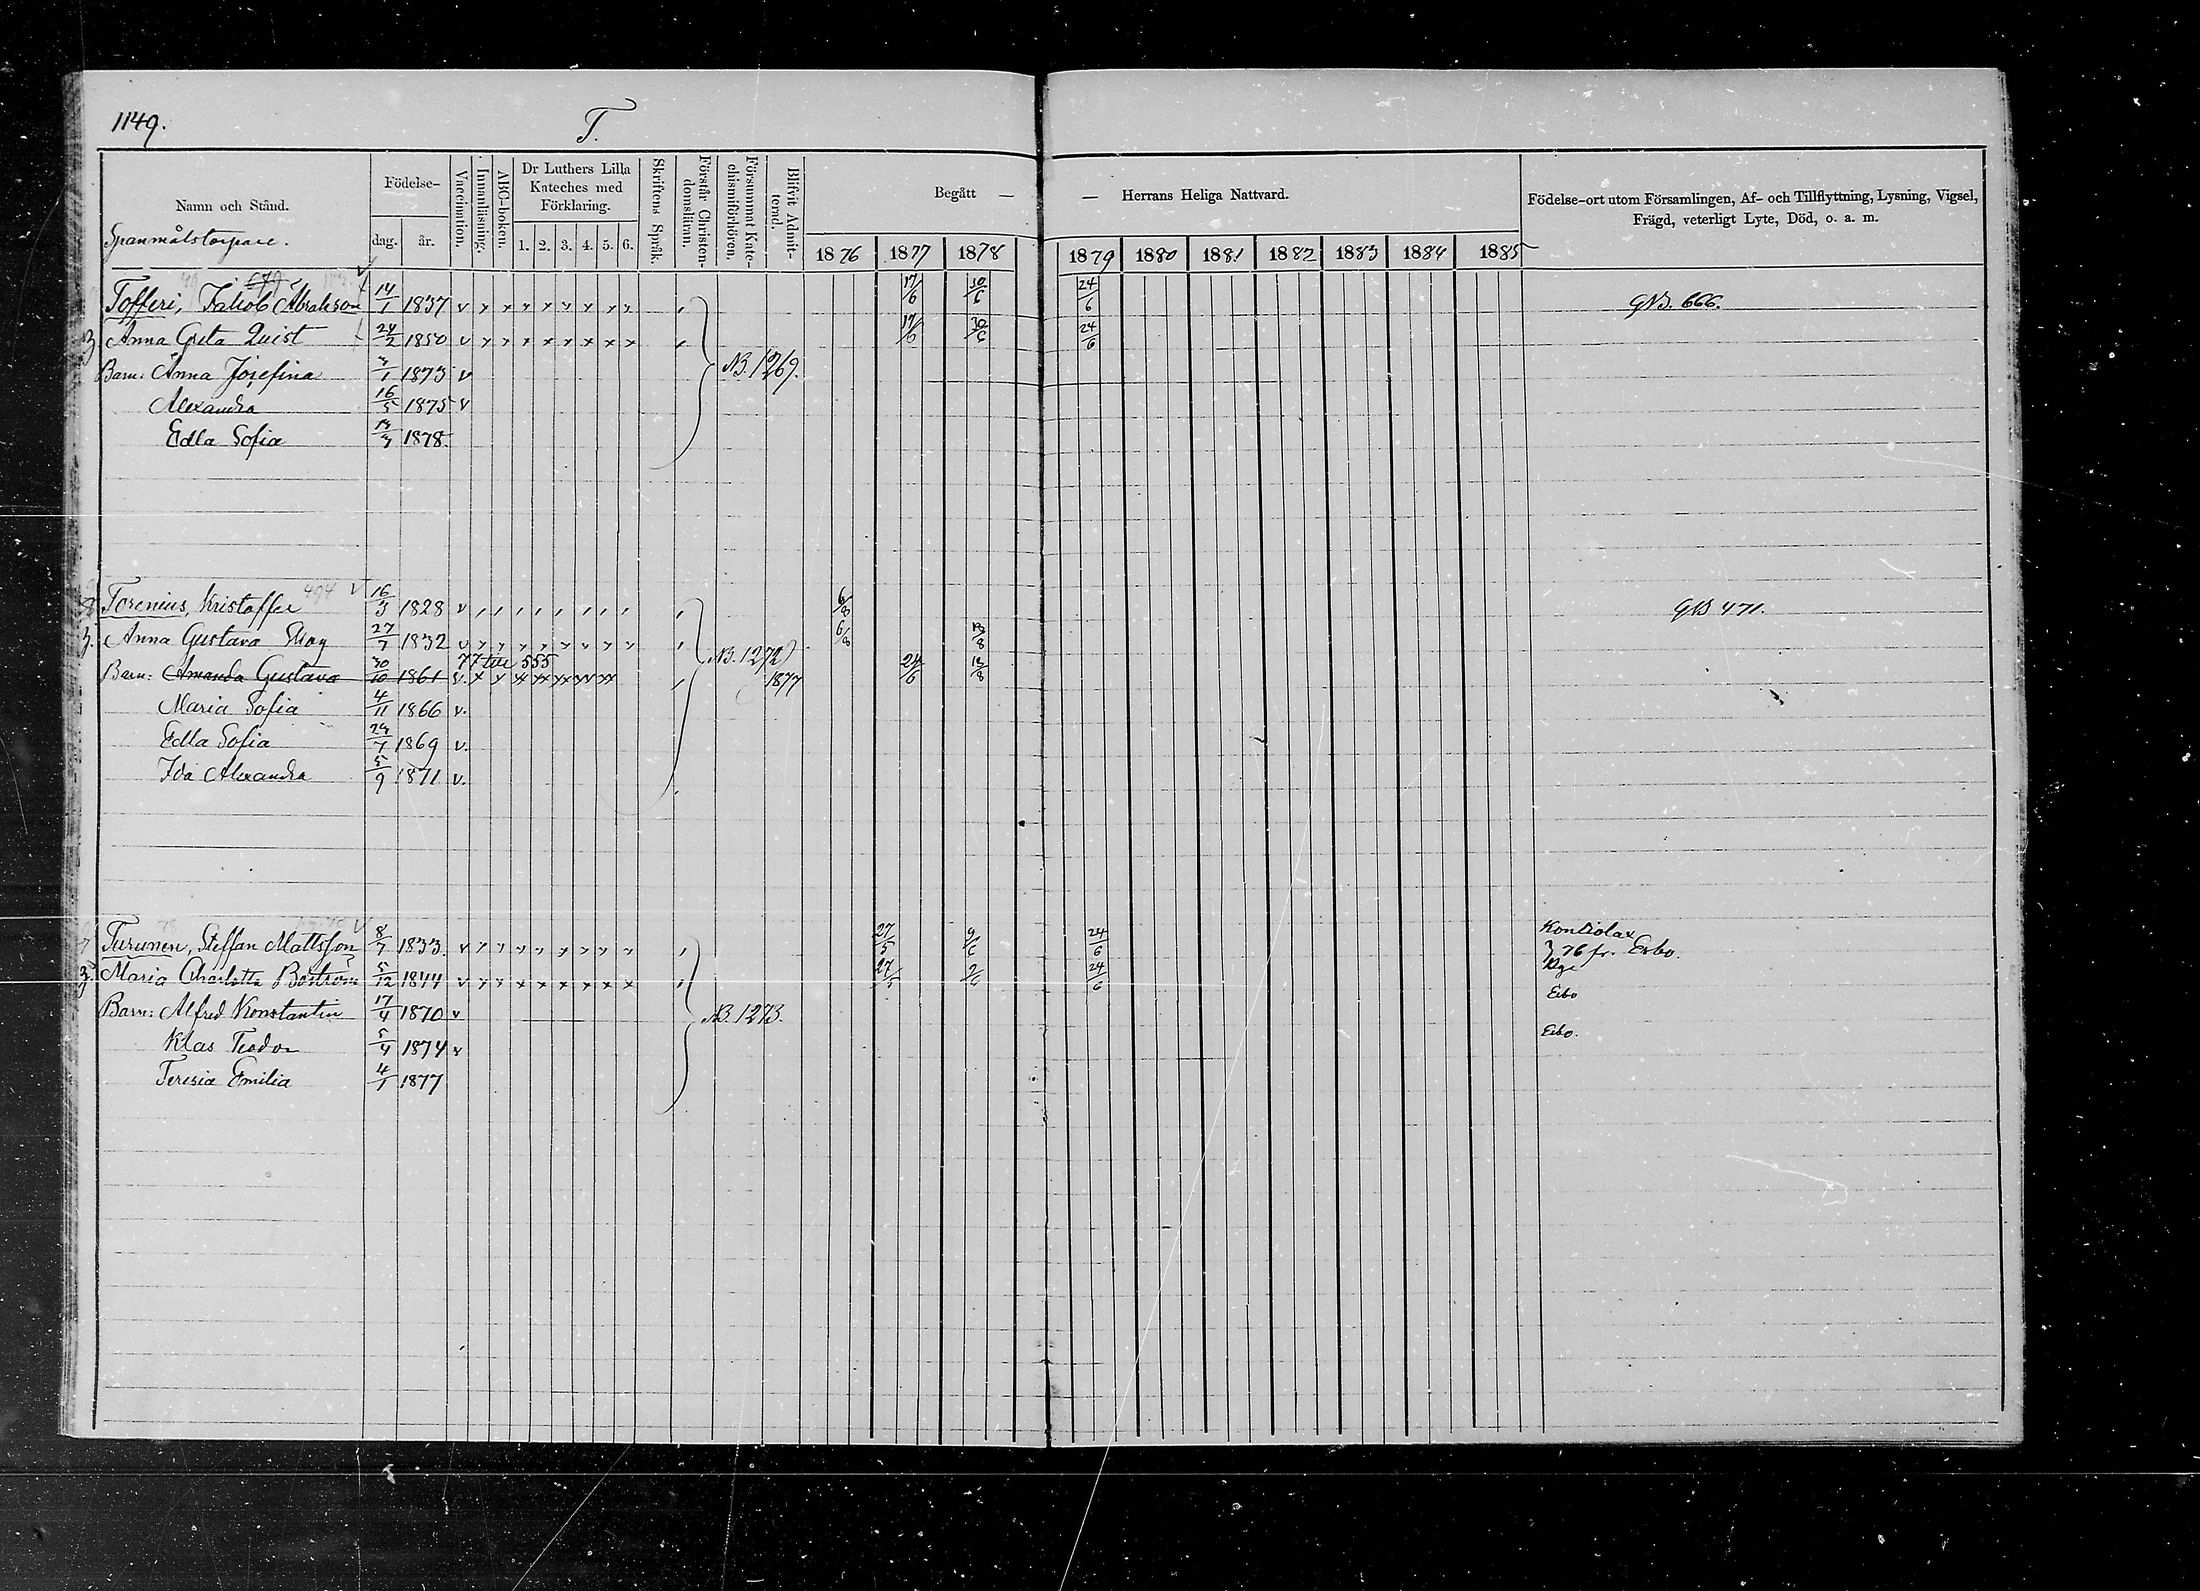 1149.
T.
Namn och Stånd.
Spanmålstorpare.
Födelse-
dag. år.
Vaccination.
Innanläsning.
ABC-boken.
Dr Luthers Lilla Kateches med Förklaring.
1. 2. 3. 4. 5. 6.
Skriftens Språk.
Förstår Christendomsläran.
Försummat Katechismiförhören.
Blifvit Admitterad.
Begått — — Herrans Heliga Nattvard.
1876 1877 1878 1879 1880 1881 1882 1883 1884 1885
Födelse-ort utom Församlingen, Af- och Tillflyttning, Lysning, Vigsel,
Frägd, veterligt Lyte, Död, o. a. m.
Tofferi, Jakob Abrahson 14/1 1837 v 17/6 30/6 24/6 GNB. 666.
Anna Greta Quist 24/2 1850 v 17/6 30/6 24/6
Barn: Anna Josefina 3/1 1873 v NB. 1269.
Alexandra 16/5 1875 v
Edla Sofia 1878
494
Torenius, Kristoffer 16/3 1828 v 6/8 GNB 471.
3. Anna Gustava 27/7 1832 v 6/8 13/8
77 till 555
Barn: Amanda Gustava 30/10 1861 v. NB. 1272 1877 24/6 13/8
Maria Sofia 4/11 1866 v.
Edla Sofia 1869 v.
Ida Alexandra 5/9 1871 v.
Turunen, Steffan Mattsson 8/7 1833 v 27/5 9/6 24/6 Kontiolax
76 fr. Esbo.
3. Maria Charlotta Boström 5/12 1844 v 27/5 24/6
Barn: Alfred Konstantin 17/4 1870 v NB. 1273. Esbo
Klas Teodor 5/4 1874 v Esbo.
Teresia Emilia 4/1 1877